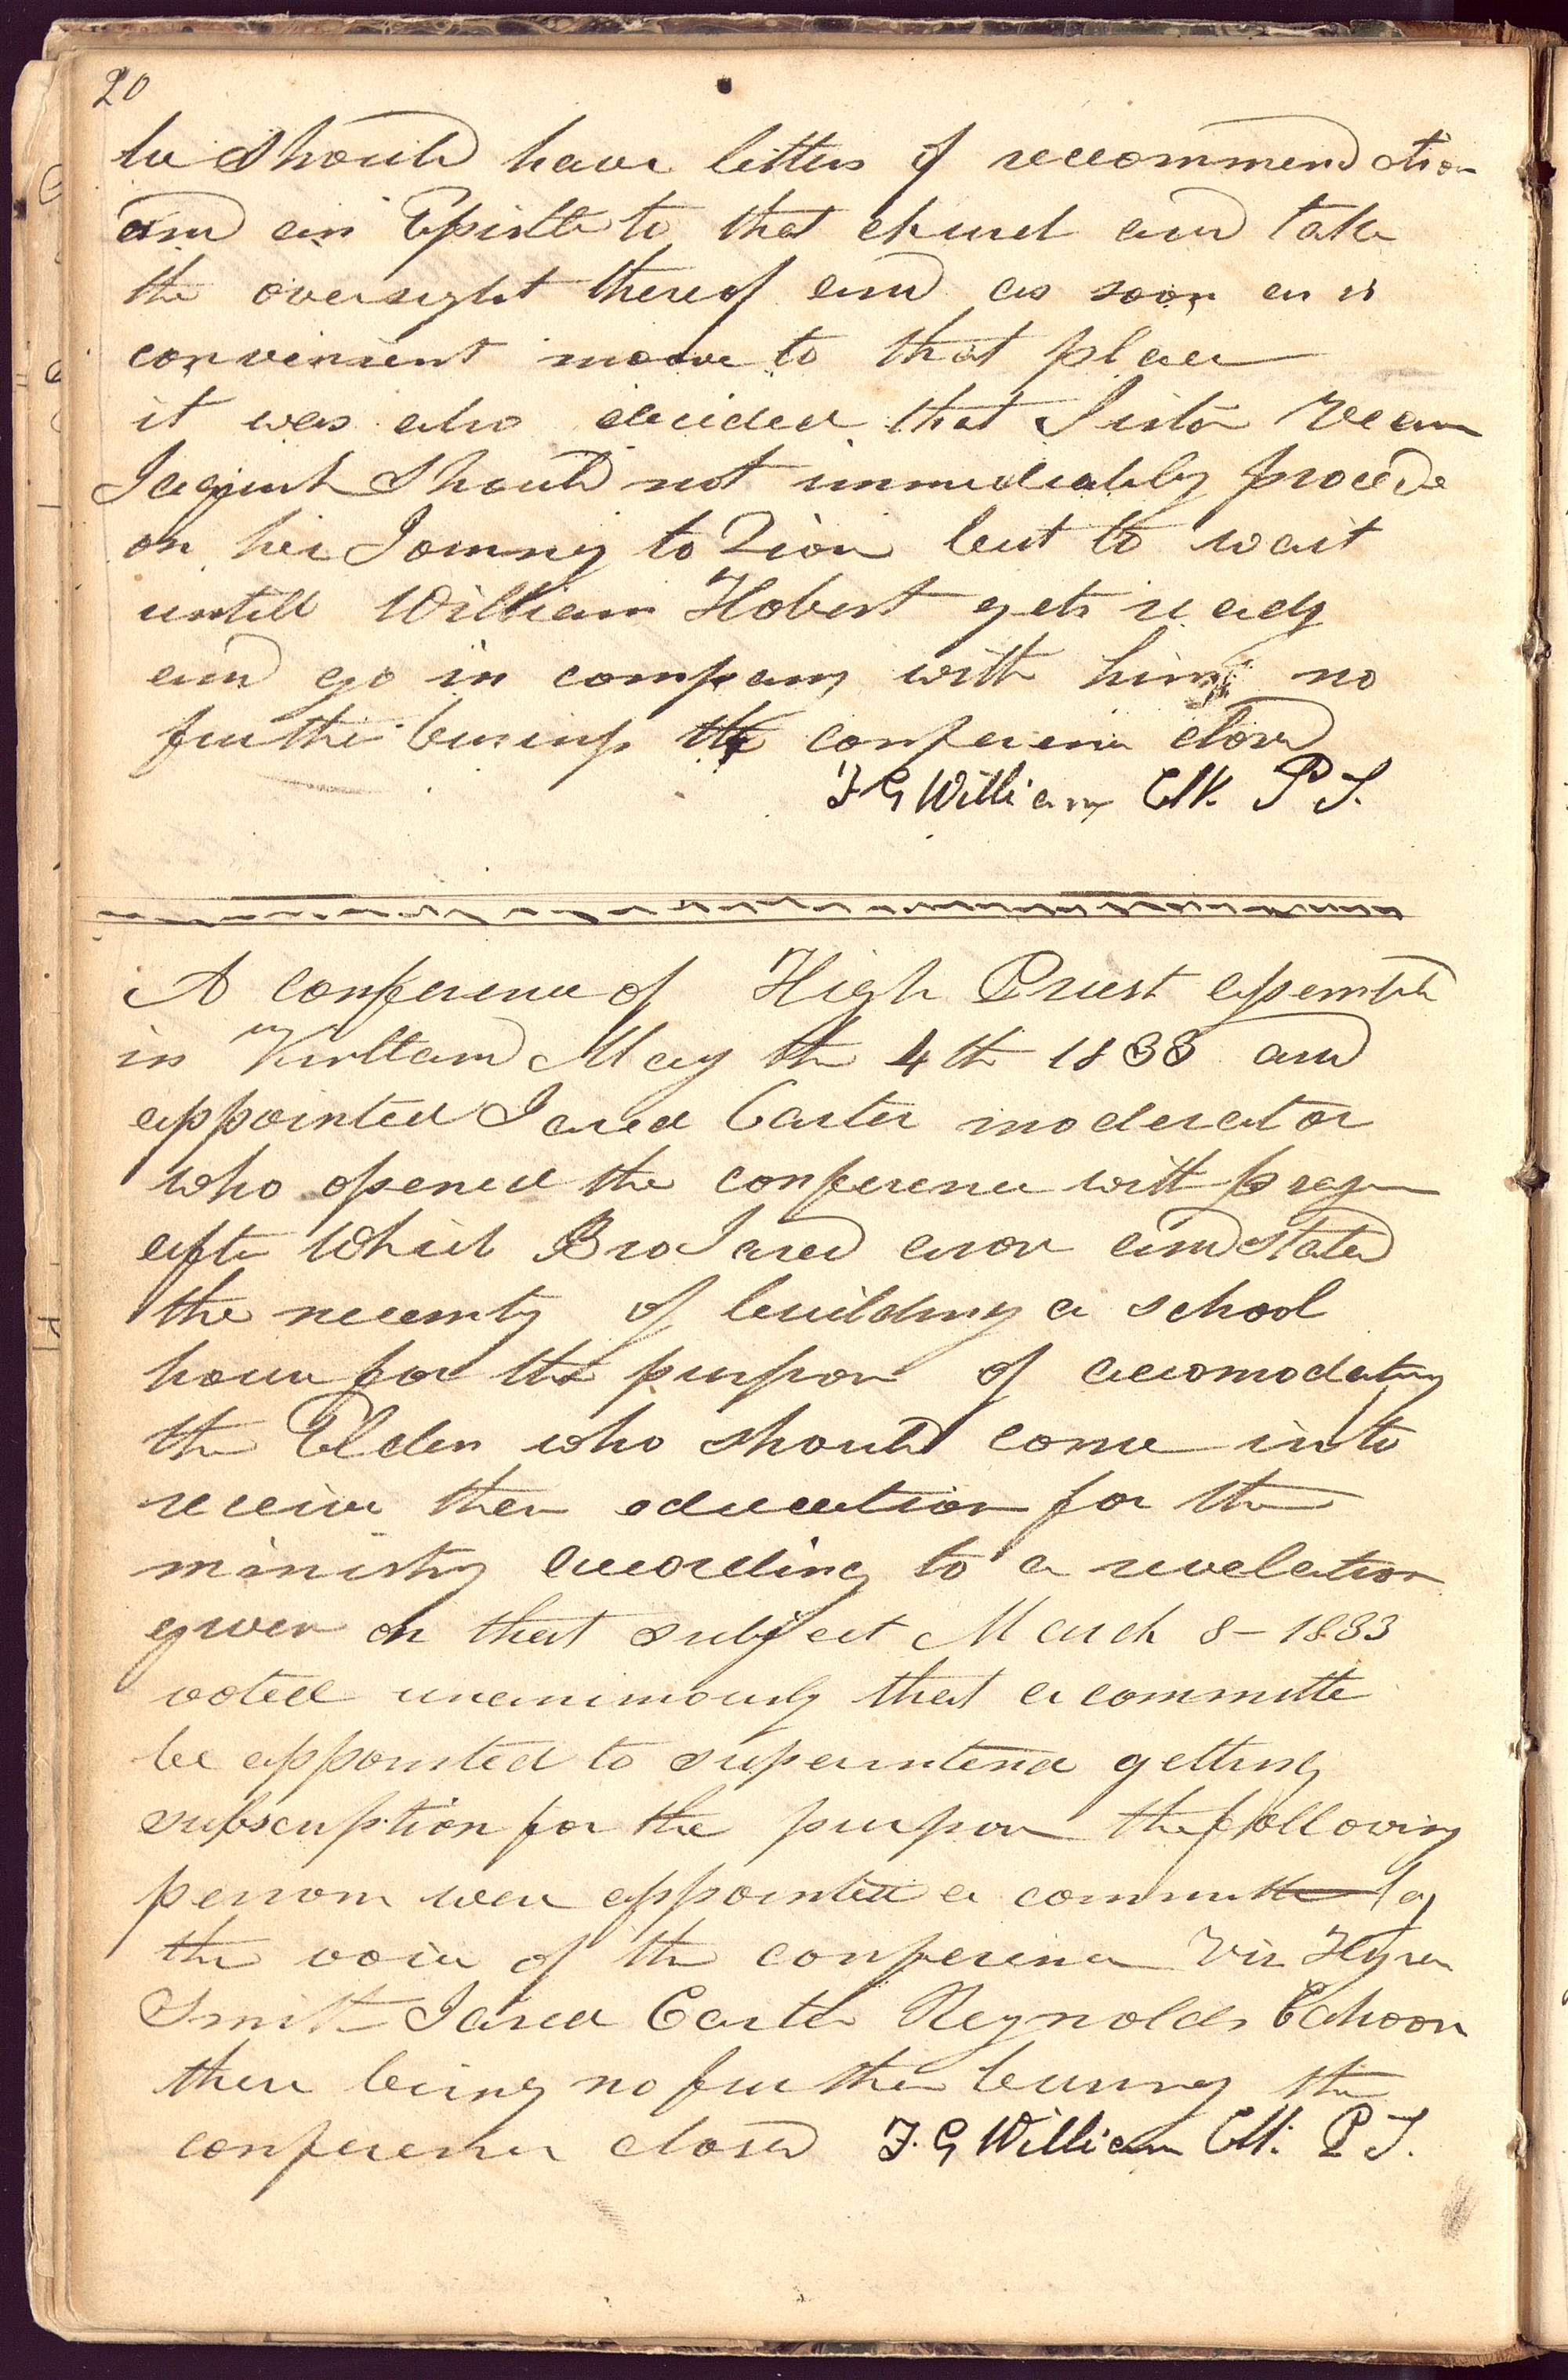 20
he should have letters of reccommendation
and an Epistle to that church and take
the oversight thereof and as soon as is
convenient moove to that place
it was also decided that Sister Vean
Jaquish should not immediately procede
on her Journey to Zion but to wait
untill William Hobert gets ready
and go in company with him no
further business the conference closed
F G Williams Clk. P T.
A conference of High Priest assembled
in Kirtland May the 4th 1833 and
appointed Jared Carter moderator
who opened the conference with prayer
after which Bro Jared arose and stated
the necessity of building a school
house for the purpose of accomodating
the Elders who should come in to
receive their education for the
ministry according to a revelation
given on that subject March 8- 1833
voted unanimously that a committe
be appointed to superintend getting
subscription for the purpose the following
persons were appointed a committe by
the voice of the conference Viz Hyram
Smith Jared Carter Reynolds Cahoon
there being no further business the
conference closed F. G Williams Clk. P T.